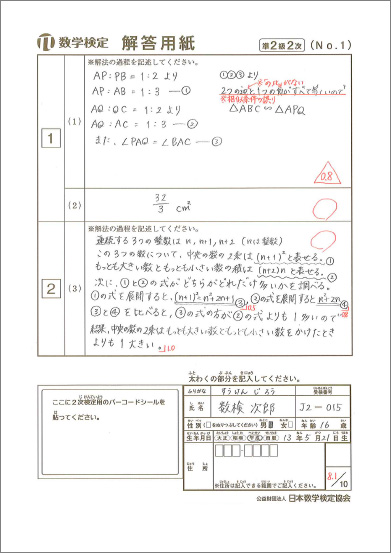 数学検定 解答用紙 準2級2次 (No.1)
※解法の過程を記述してください。
1
(1)
AP:PB = 1:2 より
AP:AB = 1:3 ―①
AQ:QC = 1:2 より
AQ:AC = 1:3 ―②
また、∠PAQ = ∠BAC ―③
①②③より
△ABC ∽ △APQ
0.8
(2)
32/3 cm²
2
(3)
※解法の過程を記述してください。
連続する3つの整数は n, n+1, n+2 (nは整数)
この3つの数について、中央の数の2乗は(n+1)²と表せる。①
もっとも大きい数ともっとも小さい数の積は(n+2)nと表せる。②
次に、①と②の式がどちらがどれだけ多いかを調べる。
①の式を展開すると、(n+1)²=n²+2n+1 ③、②の式を展開するとn²+2n ④
③と④を比べると、③の式の方が④の式よりも1多いので
結果、中央の数の2乗はもっとも大きい数ともっとも小さい数をかけたとき
よりも1大きい。
ここに2次検定用のバーコードシールを
貼ってください。
太わくの部分を記入してください。
ふりがな すうけん じろう 受検番号
氏名 数検 次郎 J2-015
生年月日 大正 昭和 平成 西暦 13年5月21日生
住所
※住所は記入できる範囲でご記入ください。
8.1/10
公益財団法人 日本数学検定協会